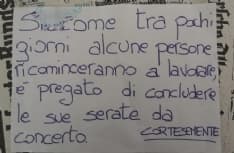 Siccome tra pochi
giorni alcune persone
ricominceranno a lavorare,
è pregato di concludere
le sue serate da
concerto.
CORTESEMENTE